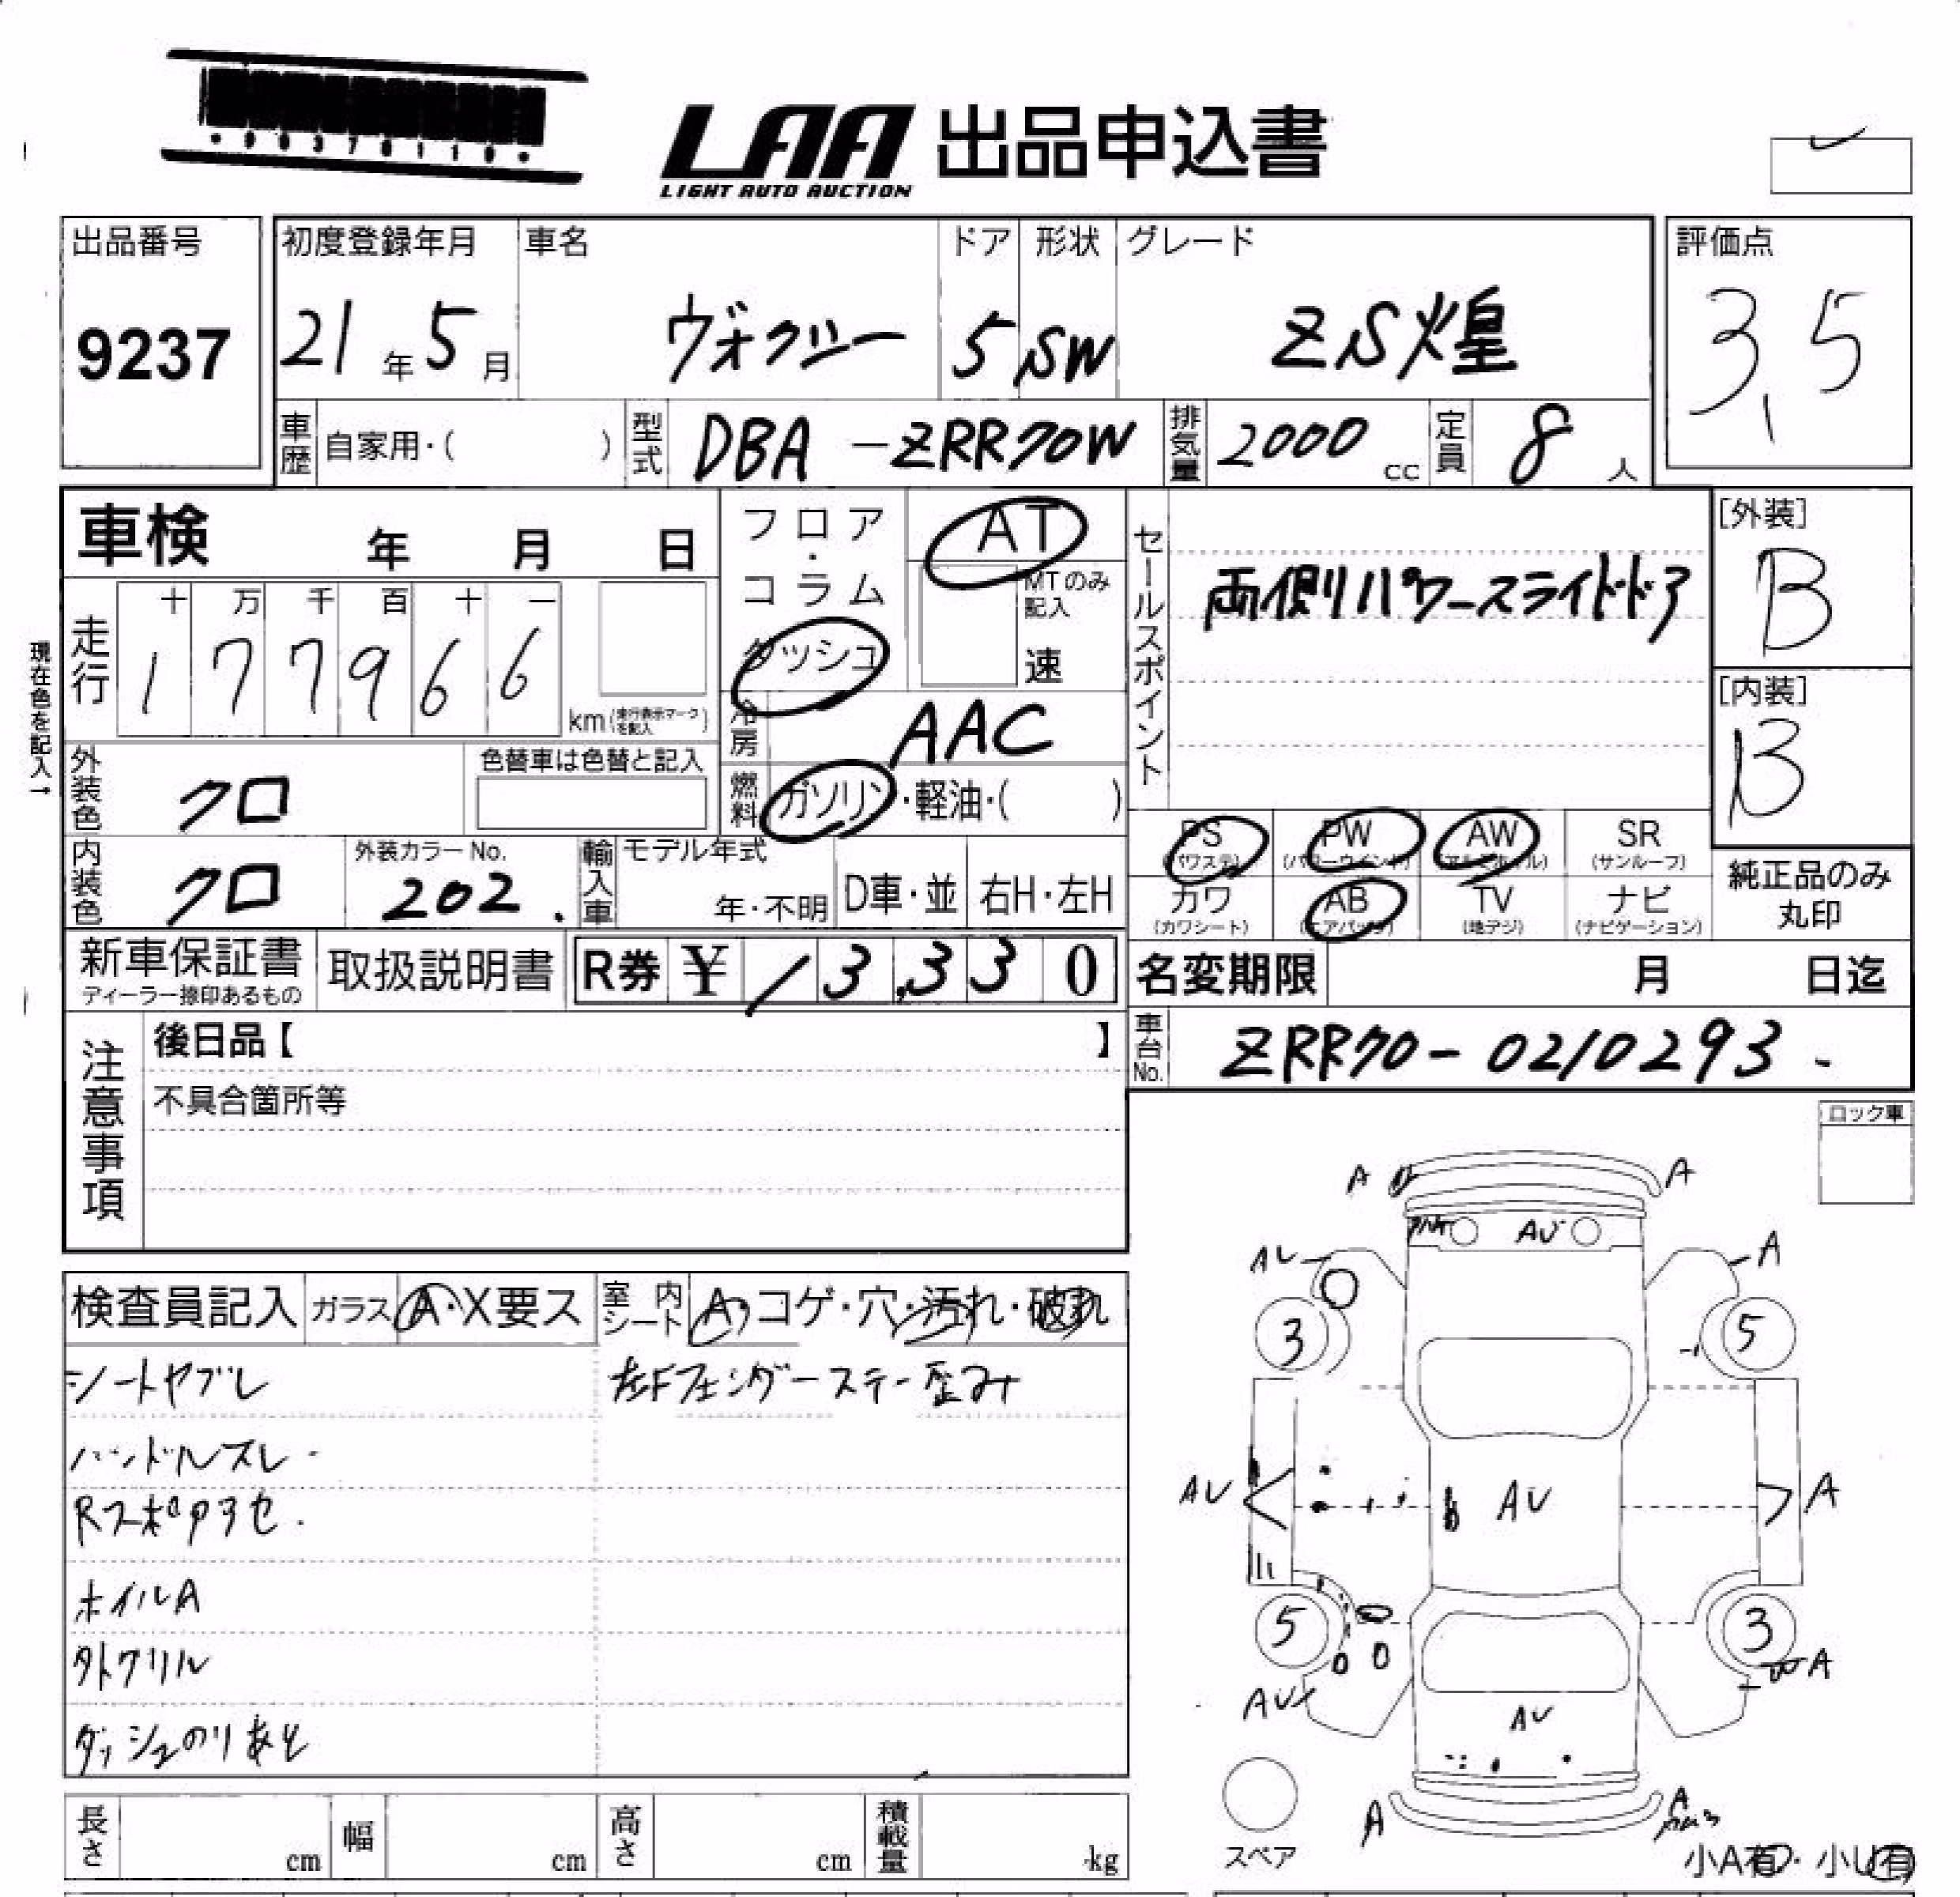 ・90370110・
LAA 出品申込書
LIGHT AUTO AUCTION
出品番号 初度登録年月 車名 ドア 形状 グレード 評価点
9237 21年 5月 ヴォクシー 5 SW ZS煌 3.5
車歴 自家用・( ) 型式 DBA-ZRR70W 排気量 2000cc 定員 8人
車検 年 月 日
フロア・コラム ダッシュ
AT
MTのみ記入
速
セールスポイント
両側パワースライドドア
[外装]
B
現在色を記入→
走行 十 万 千 百 十 一
1 7 7 9 6 6
km(走行表示マークを記入)
[内装]
B
冷房 AAC
外装色 クロ 色替車は色替と記入
燃料 ガソリン・軽油・( )
PS PW AW SR
(パワステ) (パワーウインド) (アルミホイル) (サンルーフ)
内装色 クロ 外装カラーNo. 202. 輸入車 モデル年式 年・不明 D車・並 右H・左H
カワ AB TV ナビ
(カワシート) (エアバッグ) (地デジ) (ナビゲーション)
純正品のみ
丸印
新車保証書 取扱説明書 R券 ¥ 13,330
ディーラー捺印あるもの
名変期限 月 日迄
車台No. ZRR70-0210293
注意事項
後日品【 】
不具合箇所等
ロック車
A A
AU
AU A
3 5
検査員記入 ガラス A・X要ス 室内シート A・コゲ・穴・汚れ・破れ
シートヤブレ 左Fフェンダーステー歪み
ハンドルスレ
RスポアセRスポ
ホイルA
外トグリル
ダッシュのりあと
AU AU A
5 3
A
AU
AU
A A
スペア
小A有・小U有
長さ cm 幅 cm 高さ cm 積載量 kg